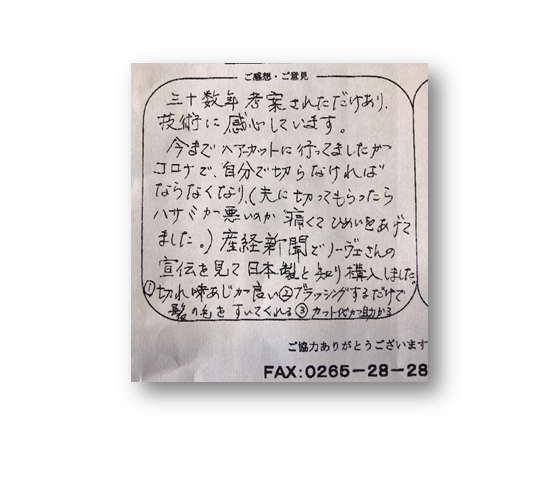 ご感想・ご意見
三十数年考案されただけあり、
技術に感心しています。
今までヘアーカットに行ってましたが
コロナで、自分で切らなければ
ならなくなり、(夫に切ってもらったら
ハサミが悪いのか痛くてひめいをあげて
ました。)産経新聞でノーヴェさんの
宣伝を見て日本製と知り購入しました。
①切れ味あじが良い②ブラッシングするだけで
髪の毛をすいてくれる③カット代が助かる
ご協力ありがとうございます
FAX:0265-28-28